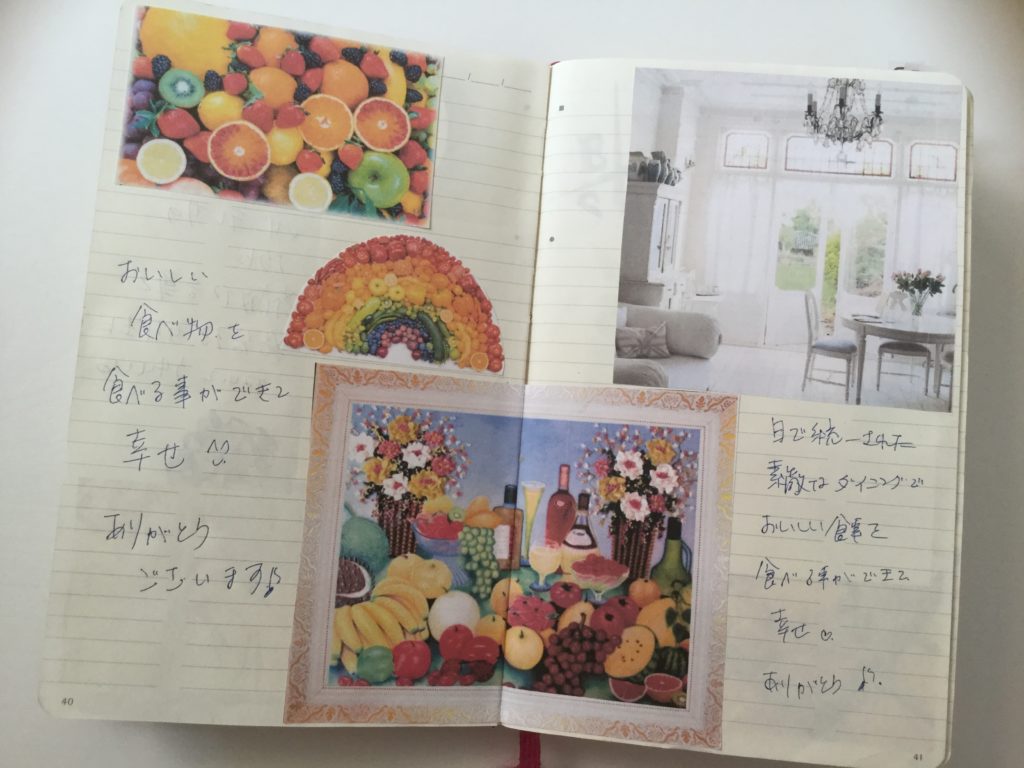 おいしい
食べ物を
食べる事ができて
幸せ
ありがとう
ございます♪
40
白で統一された
素敵なダイニングで
おいしい食事を
食べる事ができて
幸せ♡
ありがとう♪
41